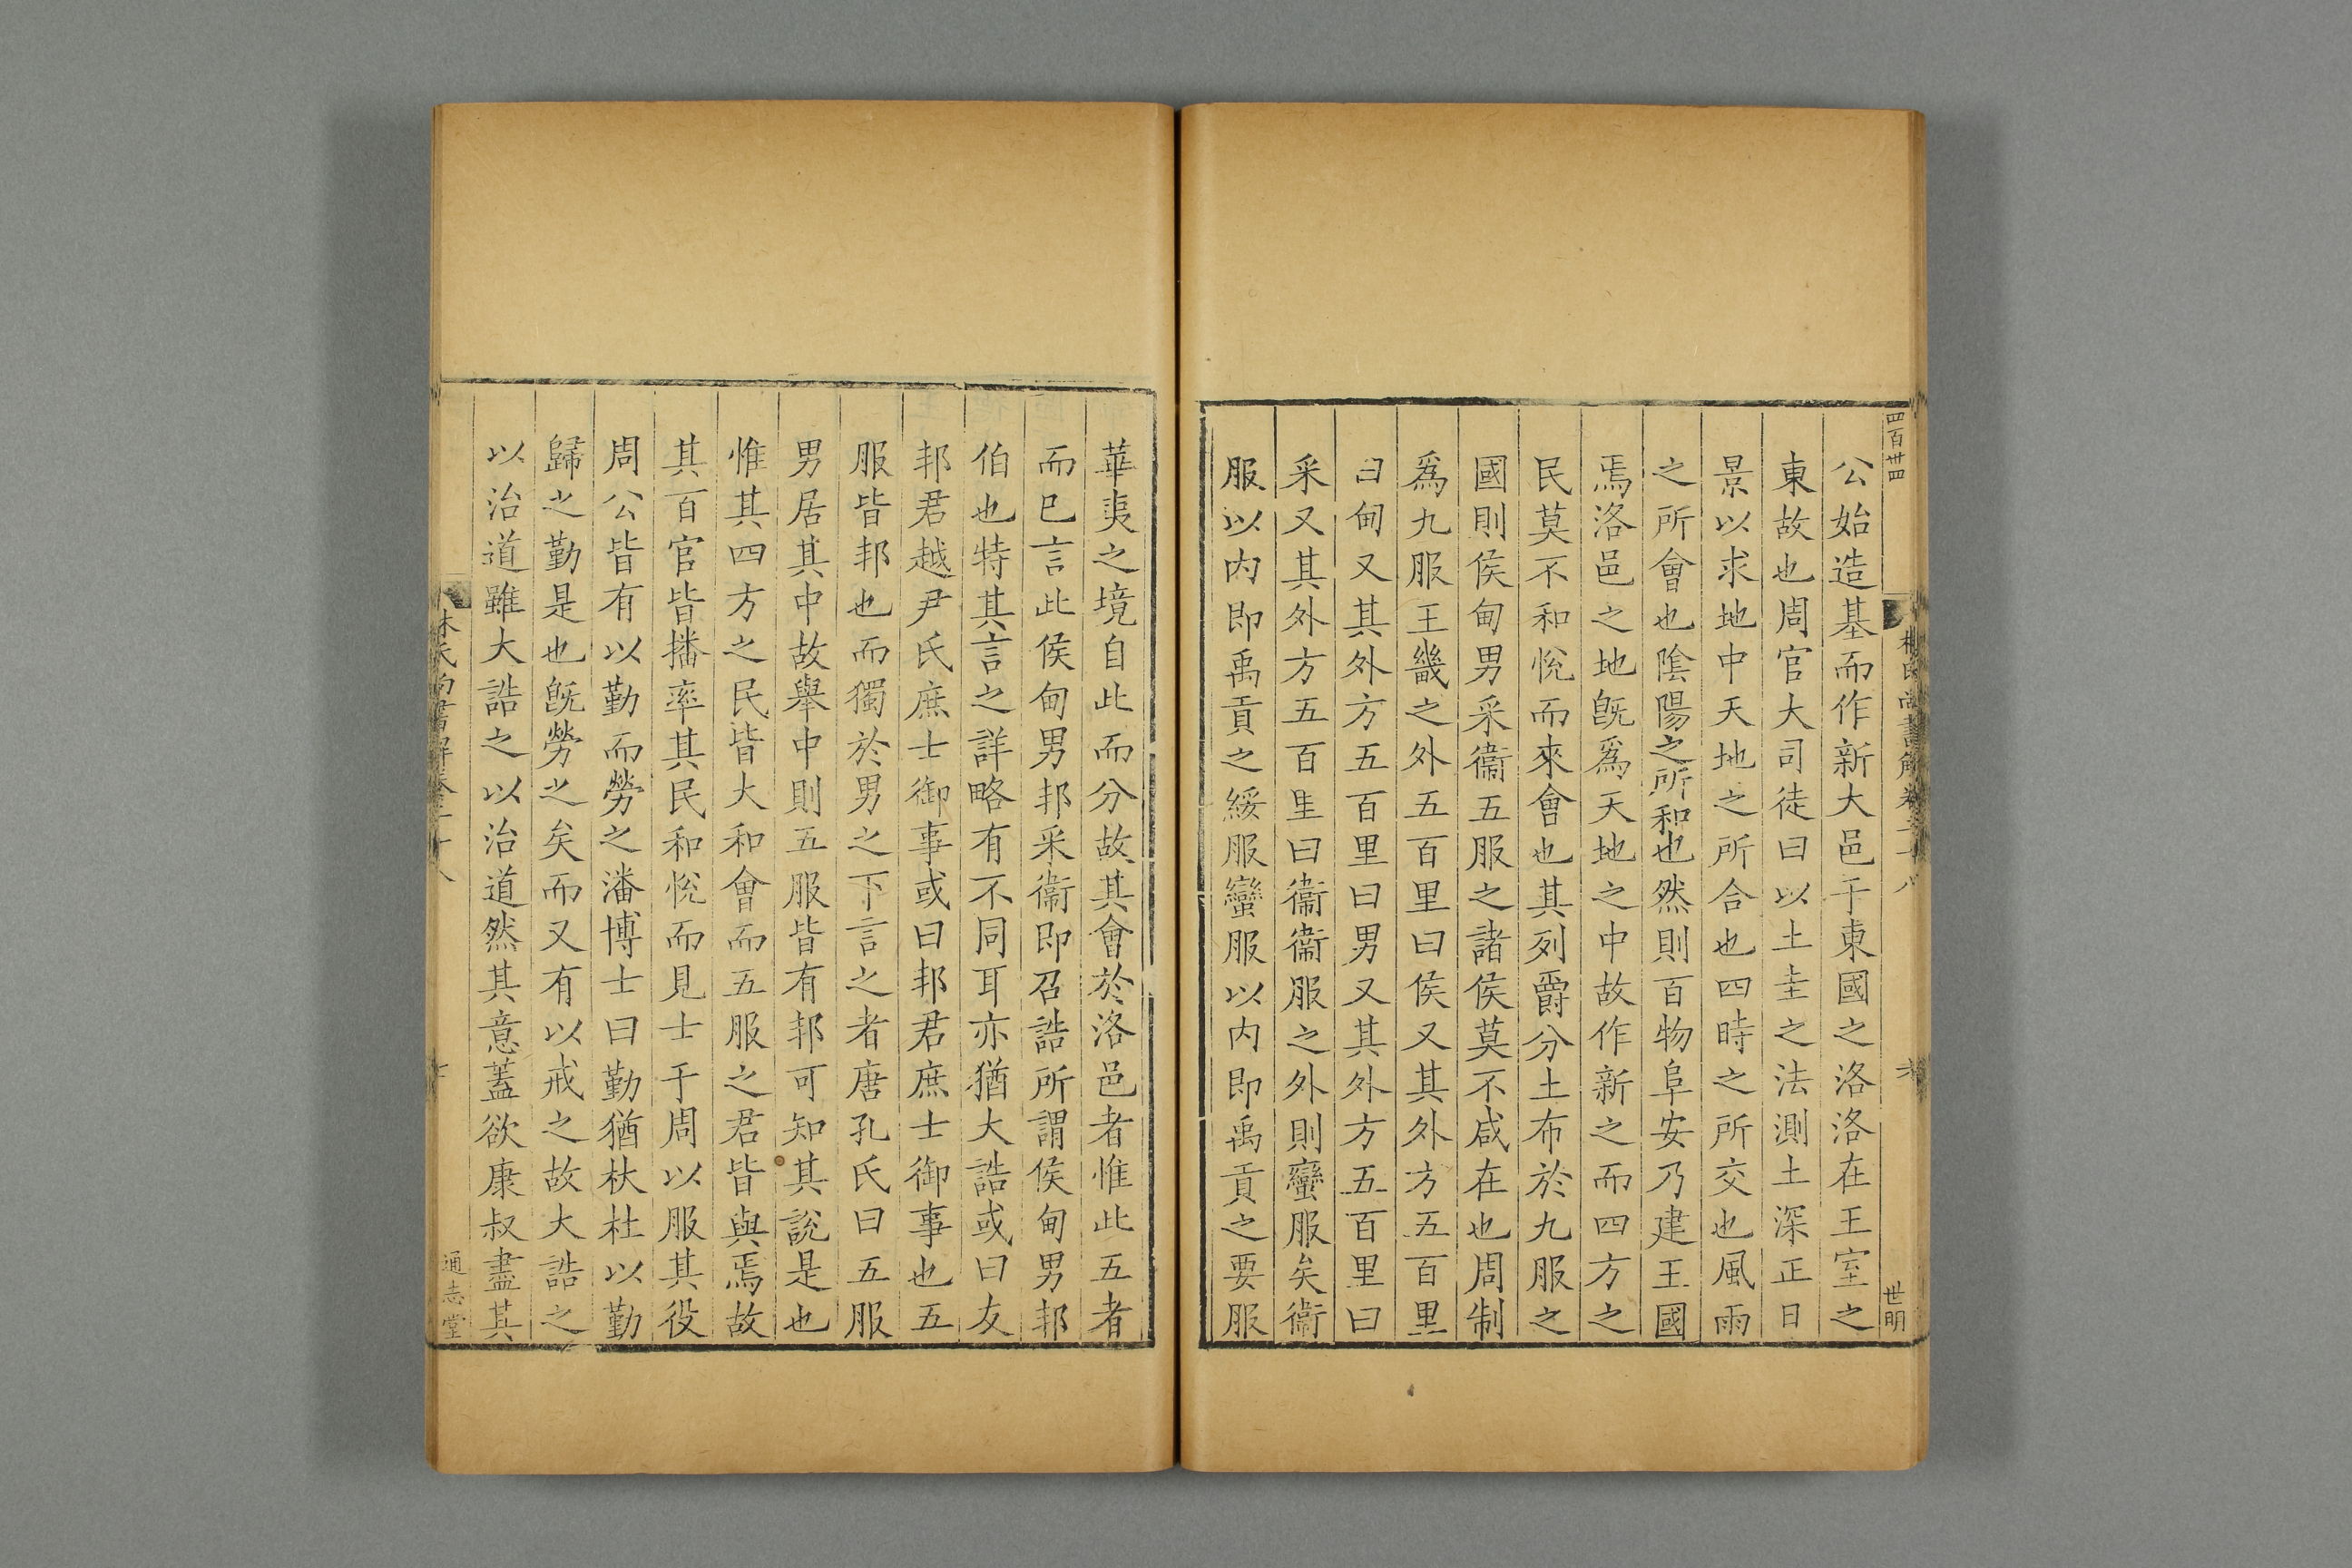 四百卄四
世明
公始造基而作新大邑于東國之洛洛在王室之
東故也周官大司徒曰以土圭之法測土深正日
景以求地中天地之所合也四時之所交也風雨
之所會也陰陽之所和也然則百物阜安乃建王國
焉洛邑之地旣爲天地之中故作新之而四方之
民莫不和悅而來會也其列爵分土布於九服之
國則侯甸男采衞五服之諸侯莫不咸在也周制
爲九服王畿之外五百里曰侯又其外方五百里
曰甸又其外方五百里曰男又其外方五百里曰
采又其外方五百里曰衞衞服之外則蠻服矣衞
服以内即禹貢之綏服蠻服以内即禹貢之要服
華夷之境自此而分故其會於洛邑者惟此五者
而已言此侯甸男邦采衞即召誥所謂侯甸男邦
伯也特其言之詳略有不同耳亦猶大誥或曰友
邦君越尹氏庶士御事或曰邦君庶士御事也五
服皆邦也而獨於男之下言之者唐孔氏曰五服
男居其中故舉中則五服皆有邦可知其說是也
惟其四方之民皆大和會而五服之君皆與焉故
其百官皆播率其民和悅而見士于周以服其役
周公皆有以勤而勞之潘博士曰勤猶杕杜以勤
歸之勤是也旣勞之矣而又有以戒之故大誥之
以治道雖大誥之以治道然其意蓋欲康叔盡其
林氏尚書解卷二十八
通志堂